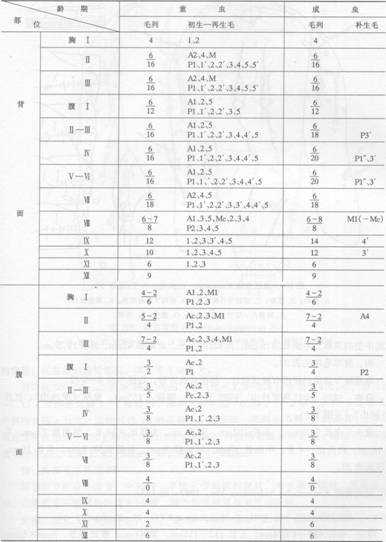 龄 期 童 虫 成 虫
部 位 毛列 初生—再生毛 毛列 补生毛
背 面
胸 Ⅰ 4 1、2 4
Ⅱ 6/16 A2、4、M P1、1′、2、2′、3、4、5、5′ 6/16
Ⅲ 6/16 A2、4、M P1、1′、2、2′、3、4、5、5′ 6/16
腹 Ⅰ 6/12 A1、2、5 P1、1′、2、2′、3、5 6/12
Ⅱ—Ⅲ 6/16 A1、2、5 P1、1′、2、2′、3、4、4′、5 6/18 P3′
Ⅳ 6/16 A1、2、5 P1、1′、2、2′、3、4、4′、5 6/20 P1″、3′
Ⅴ—Ⅵ 6/16 A1、2、5 P1、1、′、2、2′、3、4、4′、5 6/20 P1″、3′
Ⅶ 6/18 A2、4、5 P1、1′、2、2′、3、3′、4、4′、5 6/18
Ⅷ 6−7/8 A1、3、5、Mc、2、3、4 P2、3、4、5 6−8/8 M1(−Mc)
Ⅸ 12 1、2、3、3′、4、5 14 4′
Ⅹ 10 1、2、3、4、5 12 3′
Ⅺ 6 1、2、3 6
Ⅻ 9 9
腹 面
胸 Ⅰ 4−2/6 A1、2、M1 P1、2、3 4−2/6
Ⅱ 5−2/4 Ac、2、3、M1 P1、2 7−2/4 A4
Ⅲ 7−2/4 Ac、2、3、4、M1 P1、2 7−2/4
腹 Ⅰ 3/2 Ac、2 P1 3/4 P2
Ⅱ—Ⅲ 3/5 Ac、2 Pc、2、3 3/5
Ⅳ 3/8 Ac、2 P1、1′、2、3 3/8
Ⅴ—Ⅵ 3/8 Ac、2 P1、1′、2、3 3/8
Ⅶ 3/8 Ac、2 P1、1′、2、3 3/8
Ⅷ 4/0 4/0
Ⅸ 4 4
Ⅹ 4 4
Ⅺ 2 6
Ⅻ 6 6